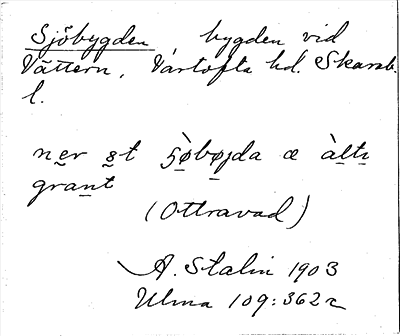 Sjöbygden bygden vid
Vättern, Vartofta hd. Skarab.
l.
ner åt ʃøbøjda æ àltı
grant
(Ottravad)
A. Stalin 1903
Ulma 109:362